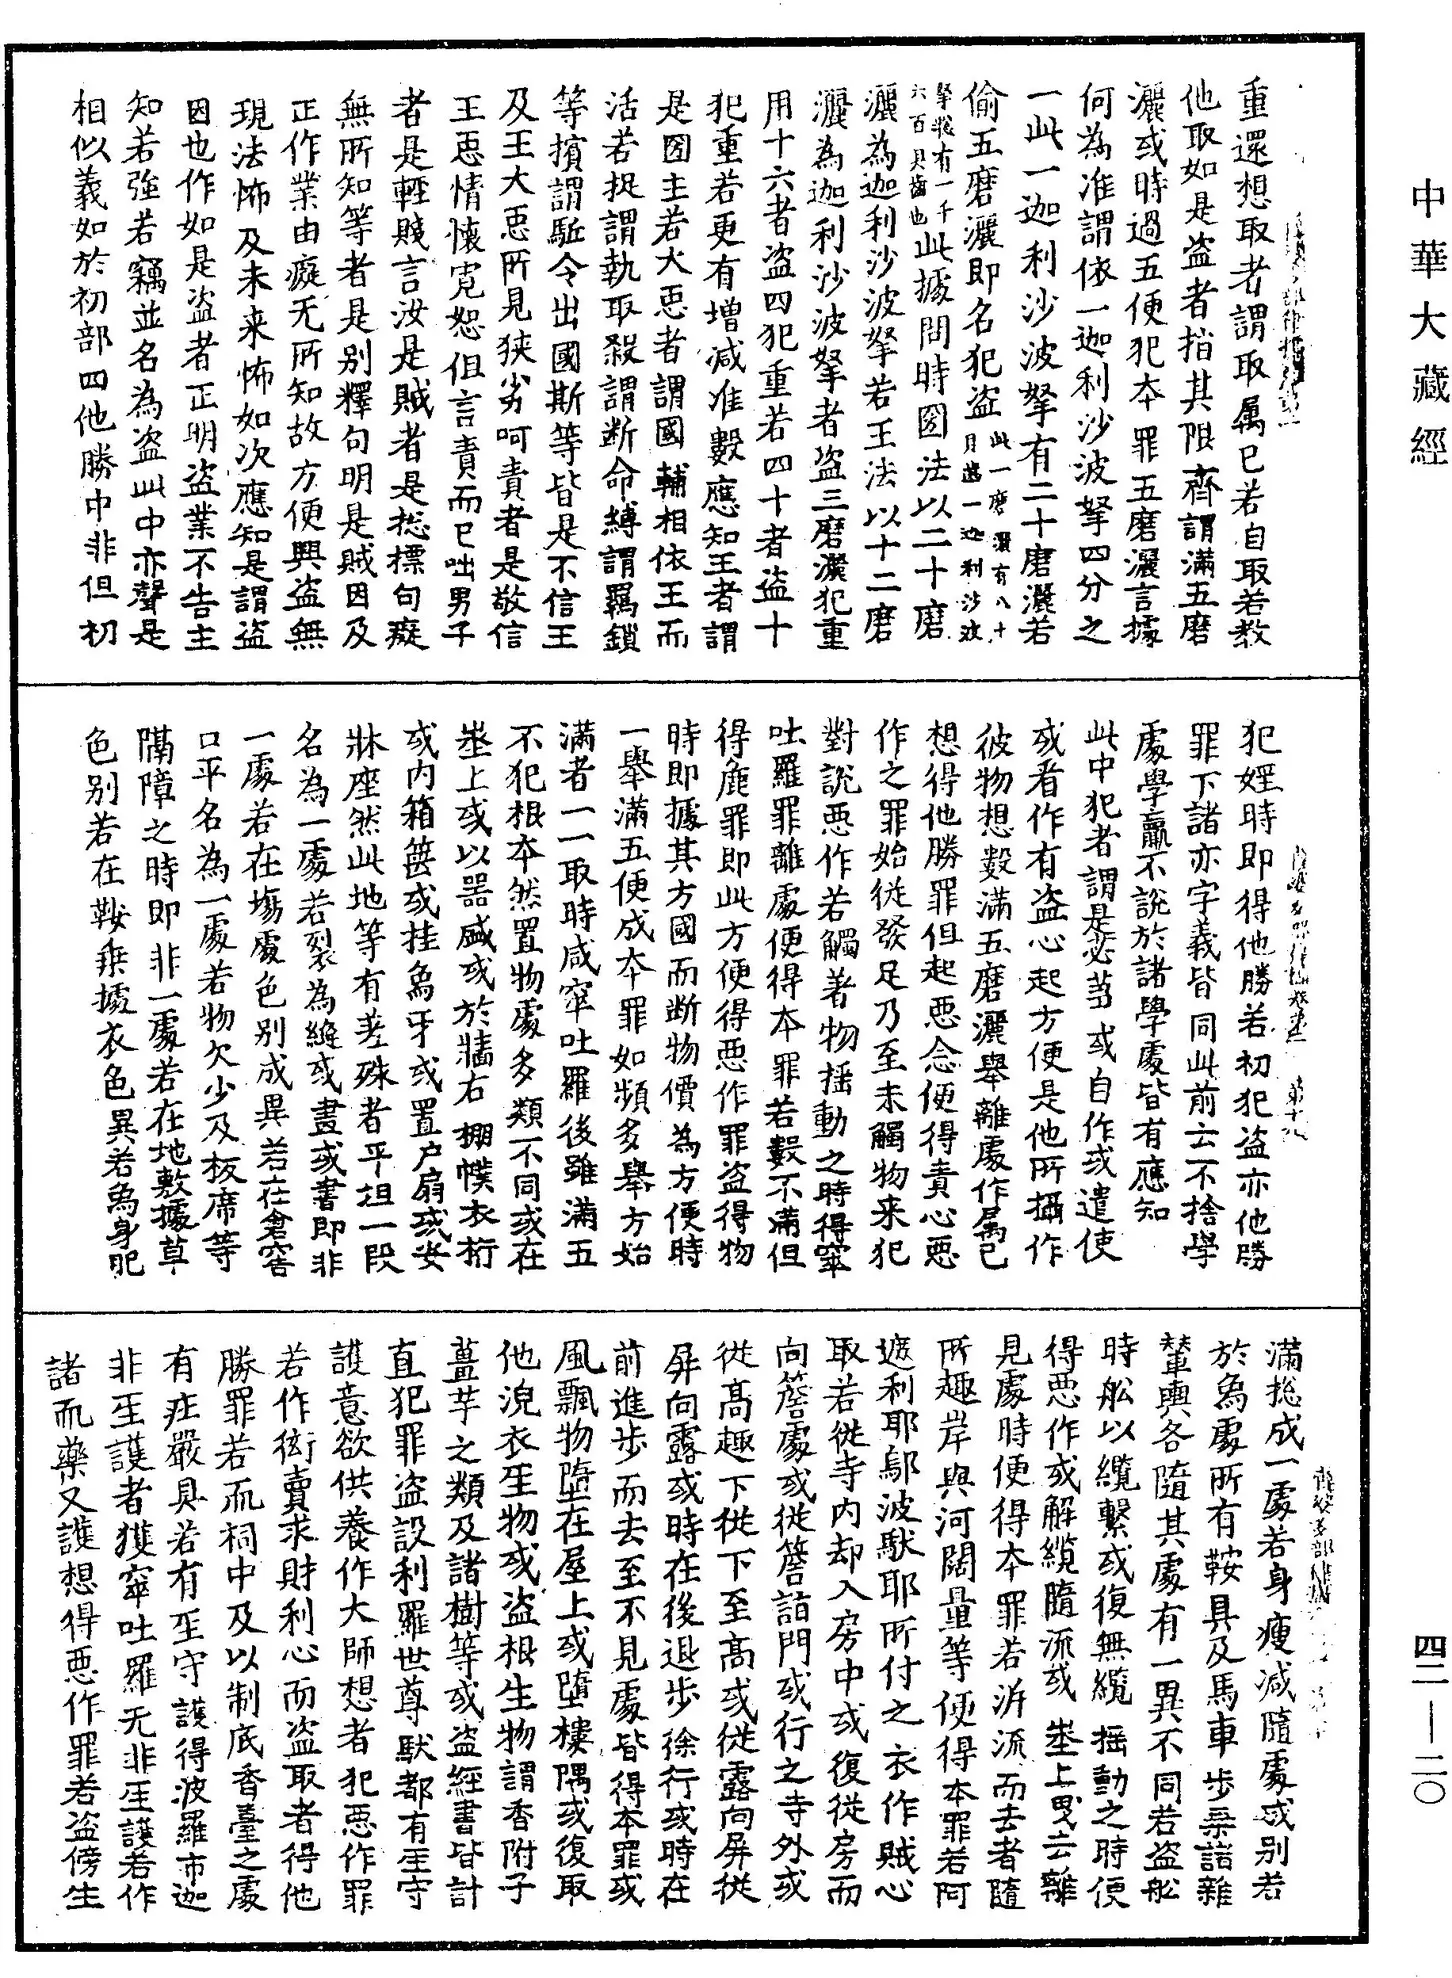 中華大藏經
四二—二〇
重還想取者謂取属已若自取若教
他取如是盗者指其限齊謂滿五磨
灑或時過五便犯夲罪五磨灑言據
何為准謂依一迦利沙波拏四分之
一此一迦利沙波拏有二十磨灑若
偷五磨灑即名犯盗此一磨灑有八十貝齒一迦利沙波
拏㧾有一千六百貝齒也此據閻時圀法以二十磨
灑為迦利沙波拏若王法以十二磨
灑為迦利沙波拏者盗三磨灑犯重
用十六者盗四犯重若四十者盗十
犯重若更有增減准數應知王者謂
是圀主若大𢙣者謂國輔相依王而
活若捉謂執取殺謂断命縛謂羈鎖
等擯謂駈令出國斯等皆是不信王
及王大𢙣所見狹劣呵責者是敬信
王𢙣情懷寛恕但言責而已咄男子
者是輕賤言汝是賊者是㧾標句癡
無所知等者是别釋句明是賊因及
正作業由癡无所知故方便興盗無
現法怖及未来怖如次應知是謂盗
因也作如是盗者正明盗業不告主
知若強若竊並名為盗此中亦聲是
相似義如於初部四他勝中非但初
犯婬時即得他勝若初犯盗亦他勝
罪下諸亦字義皆同此前云不捨學
處學羸不說於諸學處皆有應知
此中犯者謂是苾芻或自作或遣使
或看作有盗心起方便是他所攝作
彼物想數滿五磨灑舉離處作属已
想得他勝罪但起𢙣念便得責心𢙣
作之罪始從發足乃至未觸物来犯
對說𢙣作若觸著物揺動之時得窣
吐羅罪離處便得夲罪若數不滿但
得麁罪即此方便得𢙣作罪盗得物
時即據其方國而断物價為方便時
一舉滿五便成夲罪如頻多舉方始
滿者一一取時咸窣吐羅後雖滿五
不犯根夲然置物處多類不同或在
㘴上或以器盛或於牆右棚幞衣桁
或内箱篋或挂象牙或置户扇或安
牀座然此地等有差殊者平坦一段
名為一處若裂為縫或畫或書即非
一處若在塲處色别成異若在倉窖
口平名為一處若物欠少及板席等
隔障之時即非一處若在地敷據草
色别若在鞍乗據衣色異若象身肥
滿㧾成一處若身瘦減隨處或别若
於象處所有鞍具及馬車步乗諸雜
輦輿各隨其處有一異不同若盗舩
時舩以纜繫或復無纜揺動之時便
得𢙣作或解纜隨流或㘴上曵云離
見處時便得夲罪若泝流而去者隨
所趣岸與河闊量等便得夲罪若阿
遮利耶鄔波馱耶所付之衣作賊心
取若從寺内却入房中或復從房而
向簷處或從簷詣門或行之寺外或
從髙趣下從下至髙或從露向屏從
屏向露或時在後退步徐行或時在
前進步而去至不見處皆得夲罪或
風飄物墮在屋上或墮樓隅或復取
他涴衣生物或盗根生物謂香附子
薑芋之類及諸樹等或盗經書皆計
直犯罪盗設利羅世尊馱都有主守
護意欲供養作大師想者犯𢙣作罪
若作衒賣求財利心而盗取者得他
勝罪若於祠中及以制底香臺之處
有庄嚴具若有主守護得波羅市迦
非主護者獲窣吐羅无非主護若作
諸而藥叉護想得𢙣作罪若盗傍生